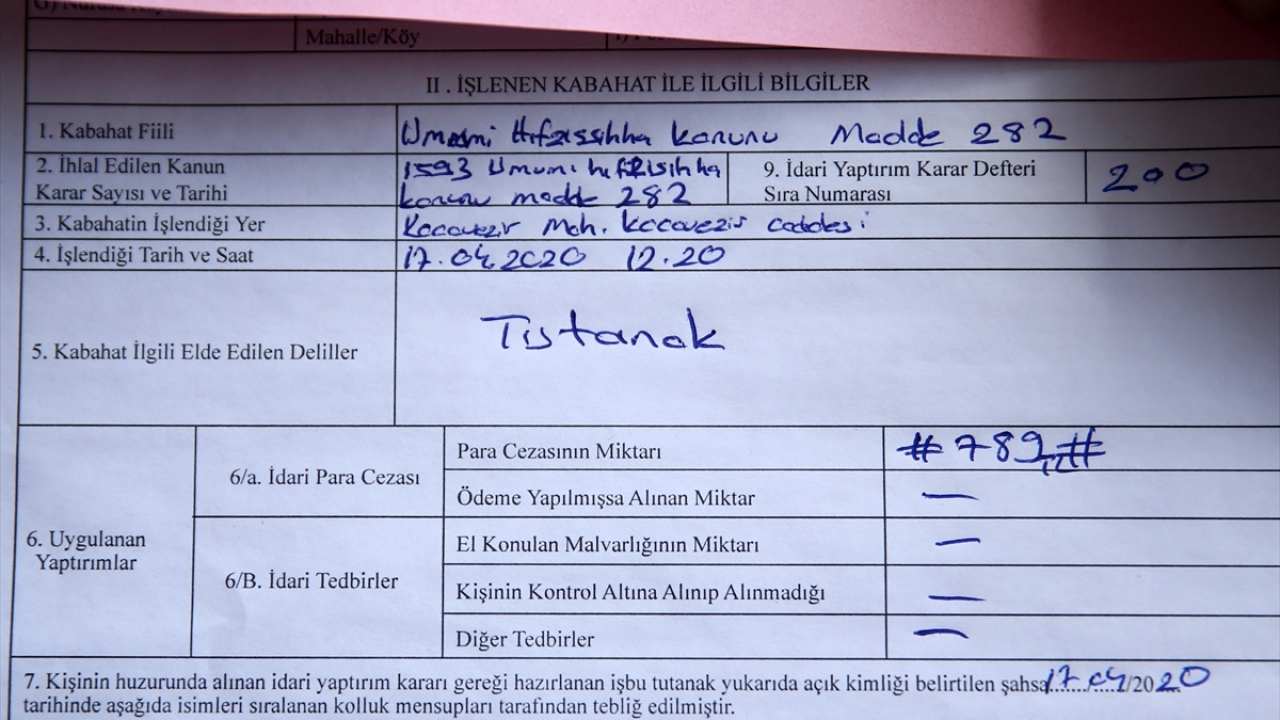 Mahalle/Köy
II . İŞLENEN KABAHAT İLE İLGİLİ BİLGİLER
1. Kabahat Fiili Umumi Hıfzıssıhha Kanunu Madde 282
2. İhlal Edilen Kanun Karar Sayısı ve Tarihi 1593 Umumi hıfzısıhha kanunu madde 282
9. İdari Yaptırım Karar Defteri Sıra Numarası 200
3. Kabahatin İşlendiği Yer Kocavezir Mah. Kocavezir caddesi
4. İşlendiği Tarih ve Saat 17.04.2020 12.20
5. Kabahat İlgili Elde Edilen Deliller Tutanak
6. Uygulanan Yaptırımlar
6/a. İdari Para Cezası
Para Cezasının Miktarı #789TL#
Ödeme Yapılmışsa Alınan Miktar —
6/B. İdari Tedbirler
El Konulan Malvarlığının Miktarı —
Kişinin Kontrol Altına Alınıp Alınmadığı —
Diğer Tedbirler —
7. Kişinin huzurunda alınan idari yaptırım kararı gereği hazırlanan işbu tutanak yukarıda açık kimliği belirtilen şahsa 17/04/2020
tarihinde aşağıda isimleri sıralanan kolluk mensupları tarafından tebliğ edilmiştir.